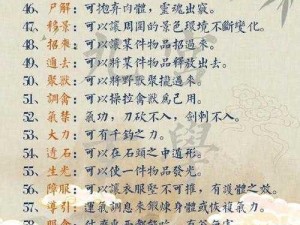 46、尸解：可抛弃内體，靈魂出竅。
47、移景：可以讓周圍的景色環境不斷變化。
48、招來：可以讓某件物品招過來。
49、逈去：可以將某件物品釋放出去。
50、聚獸：可以將野獸聚攏過來。
51、調禽：可以操拉禽獸爲己用。
52、氣禁：氣功，刀砍不入，劍刺不入。
53、大力：可有千鈞之力。
54、透石：可以在石頭之中遁形。
55、生光：可以使一件物品發光。
56、障服：可以讓衣服堅不可摧，有護體之效。
57、導引：運氣調息來鍛煉身體或恢複氣力。
58、服食：